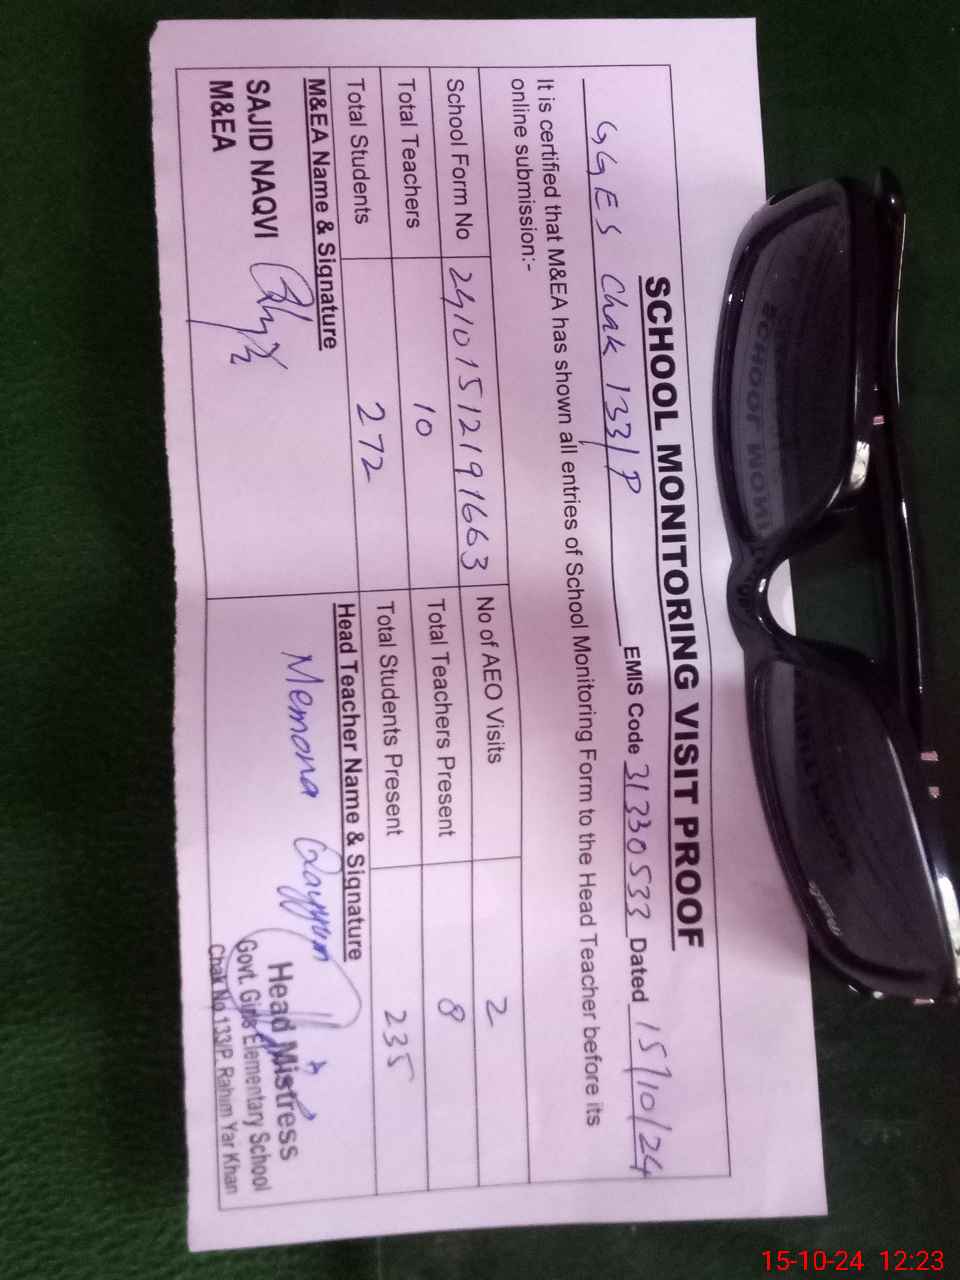 SCHOOL MONITORING VISIT PROOF
GGES Chak 133/P EMIS Code 31330533 Dated 15/10/24
It is certified that M&EA has shown all entries of School Monitoring Form to the Head Teacher before its
online submission:-
School Form No 24101512191663 No of AEO Visits 2
Total Teachers 10 Total Teachers Present 8
Total Students 272 Total Students Present 235
M&EA Name & Signature Head Teacher Name & Signature
SAJID NAQVI Memona Qayyum
M&EA
Head Mistress
Govt. Girls Elementary School
Chak No.133/P. Rahim Yar Khan
15-10-24 12:23